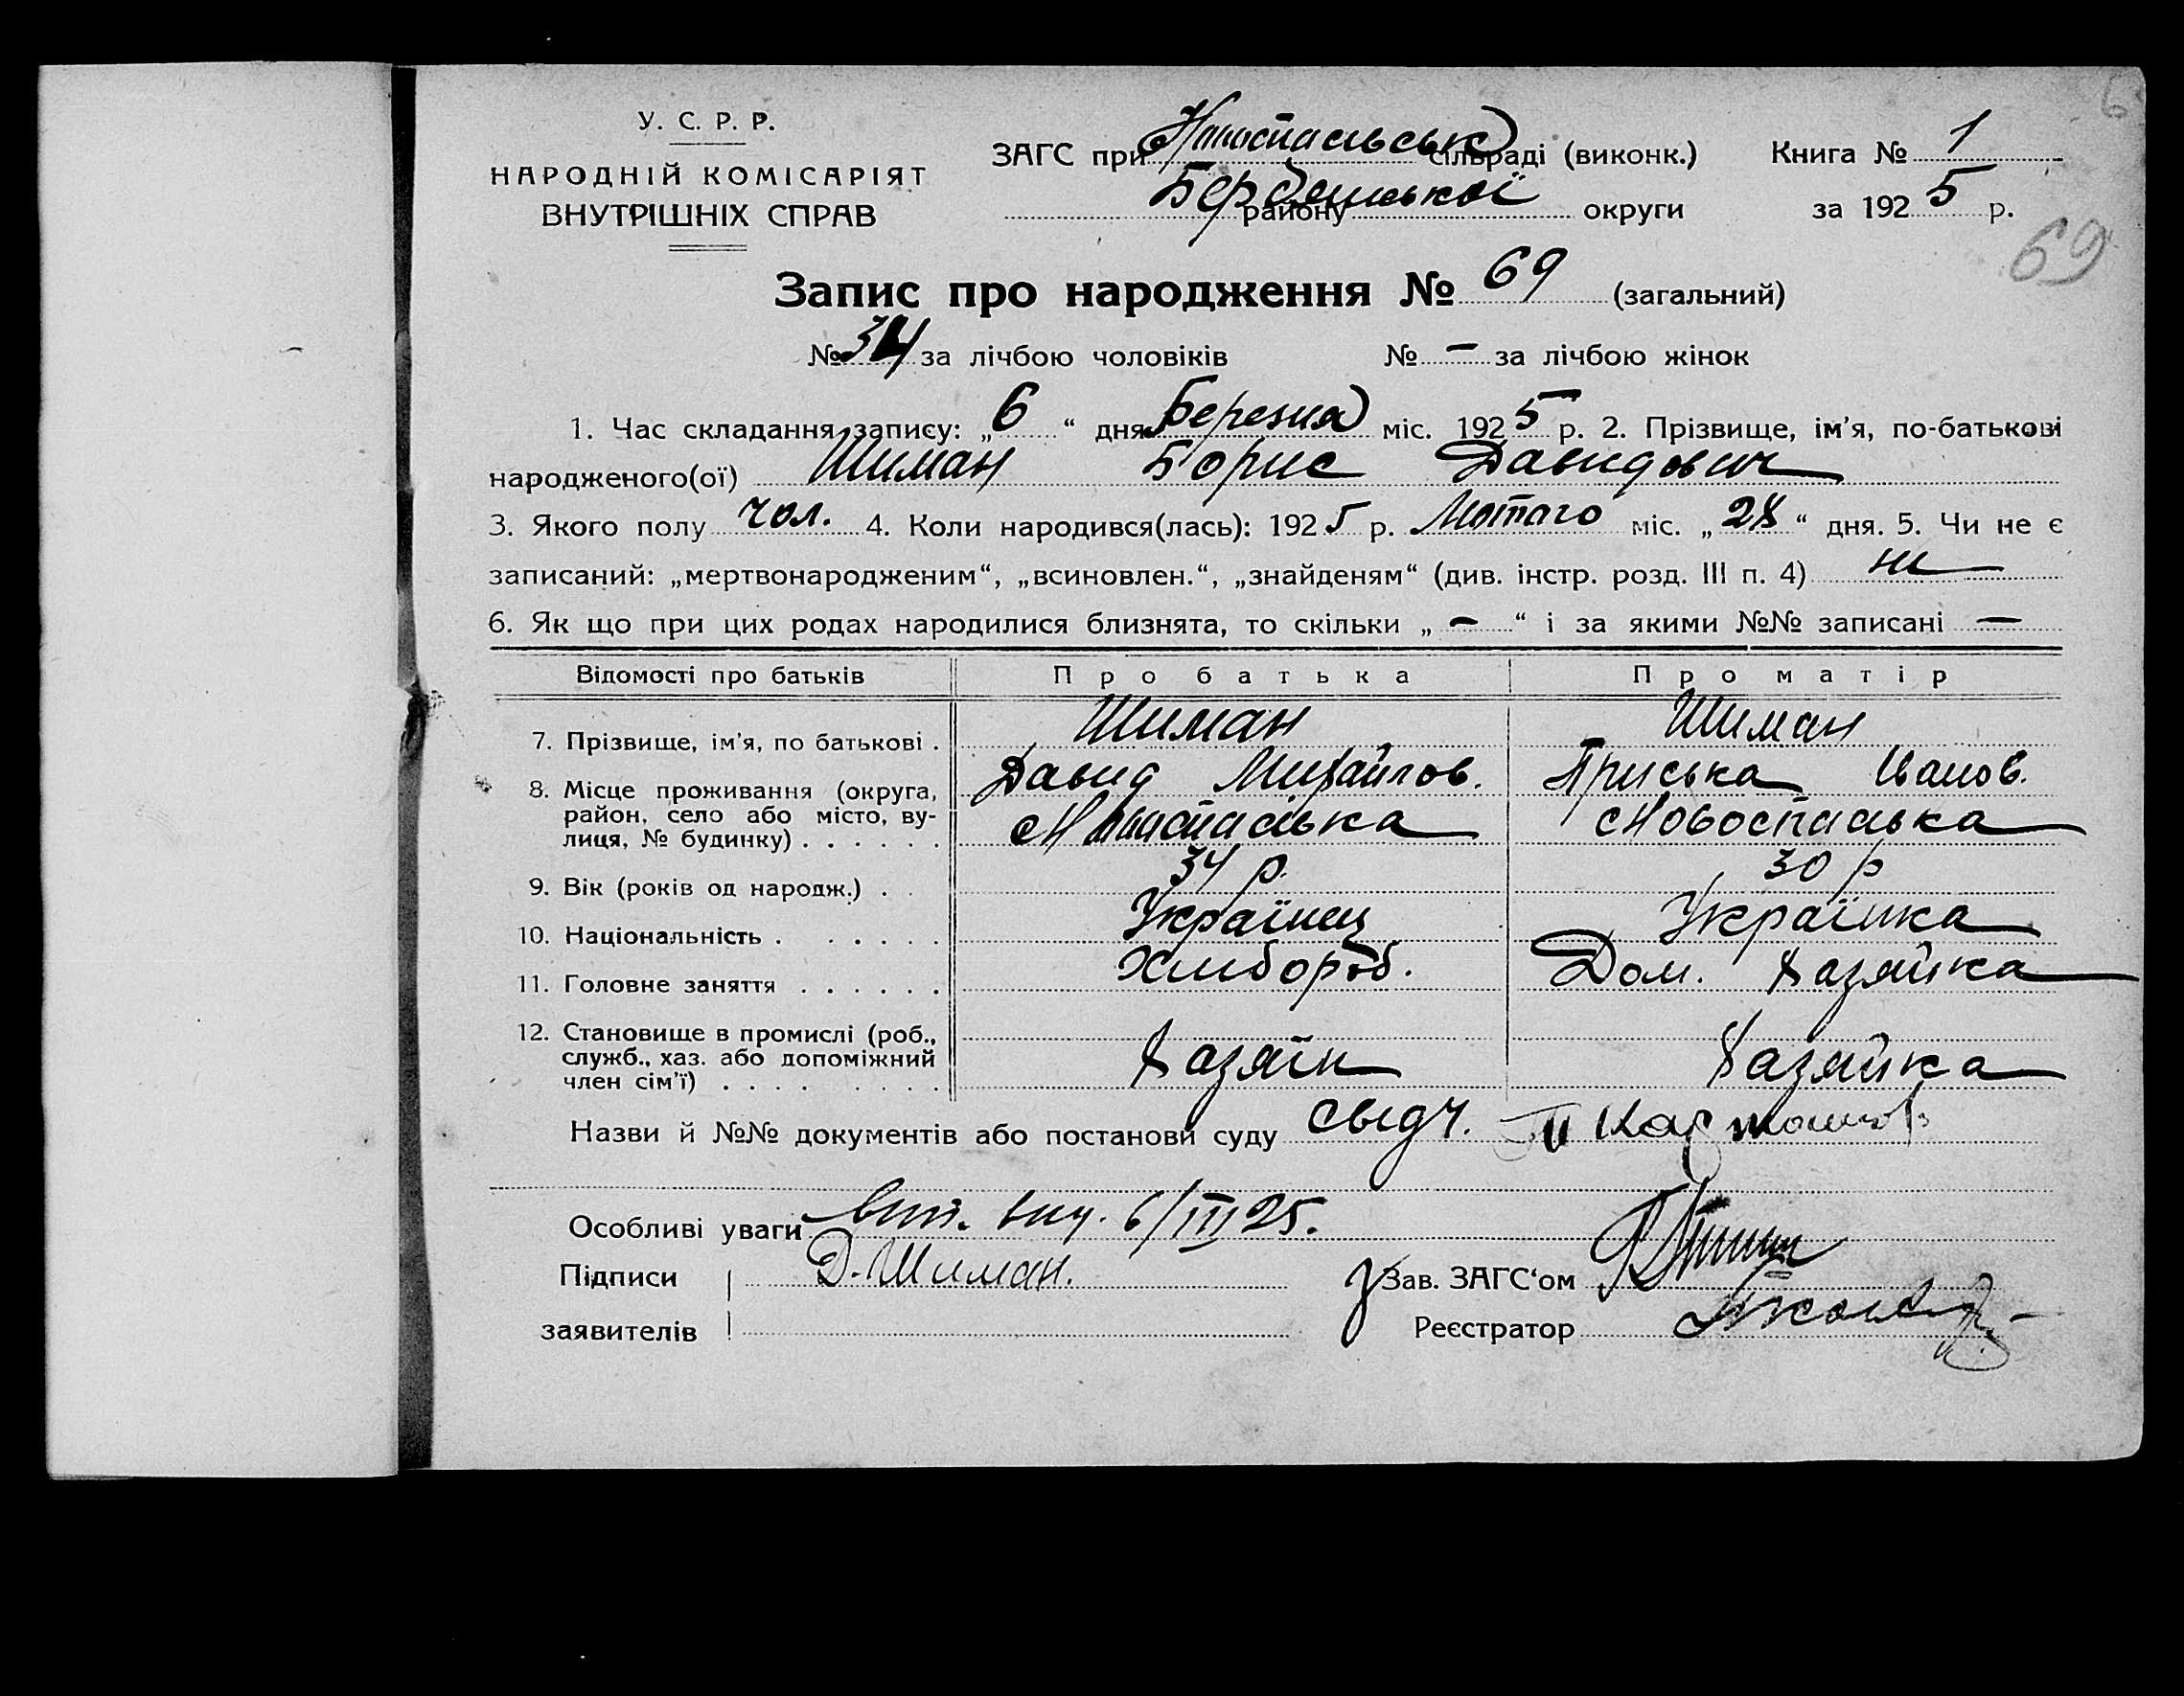 6
У. С. Р. Р.
НАРОДНІЙ КОМІСАРІЯТ
ВНУТРІШНІХ СПРАВ
ЗАГС при сільраді (виконк.) Книга № 1
району округи за 1925 р.
69
Запис про народження № 69 (загальний)
№ 34 за лічбою чоловіків № — за лічбою жінок
1. Час складання запису: „6“ дня Березня міс. 1925 р. 2. Прізвище, ім'я, по-батькові
народженого(ої) Шиман Борис Давидович
3. Якого полу чол. 4. Коли народився(лась): 1925 р. Лютого міс. „28“ дня. 5. Чи не є
записаний: „мертвонародженим“, „всиновлен.“, „знайденям“ (див. інстр. розд. III п. 4) ні
6. Як що при цих родах народилися близнята, то скільки „—“ і за якими №№ записані —
Відомості про батьків Про батька Про матір
7. Прізвище, ім'я, по батькові . Шиман Шиман
Давид Михайлов. Приська Іванов.
8. Місце проживання (округа,
район, село або місто, ву-
лиця, № будинку) . . . . . . Новоспаська Новоспаська
9. Вік (років од народж.) . . 34 р. 30 р
10. Національність . . . . . . Українец Українка
11. Головне заняття . . . . . . Хлибороб. Дом. Хазяйка
12. Становище в промислі (роб.,
служб., хаз. або допоміжний
член сім'ї) . . . . . . . . Хазяїн Хазяйка
Назви й №№ документів або постанови суду
Особливі уваги 6/III 25.
Підписи Д. Шиман. Зав. ЗАГС'ом
заявителів Реєстратор